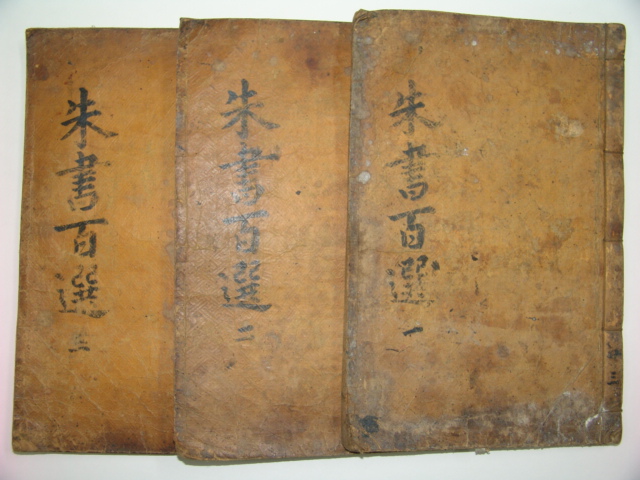 朱書百選 一
朱書百選 二
朱書百選 三